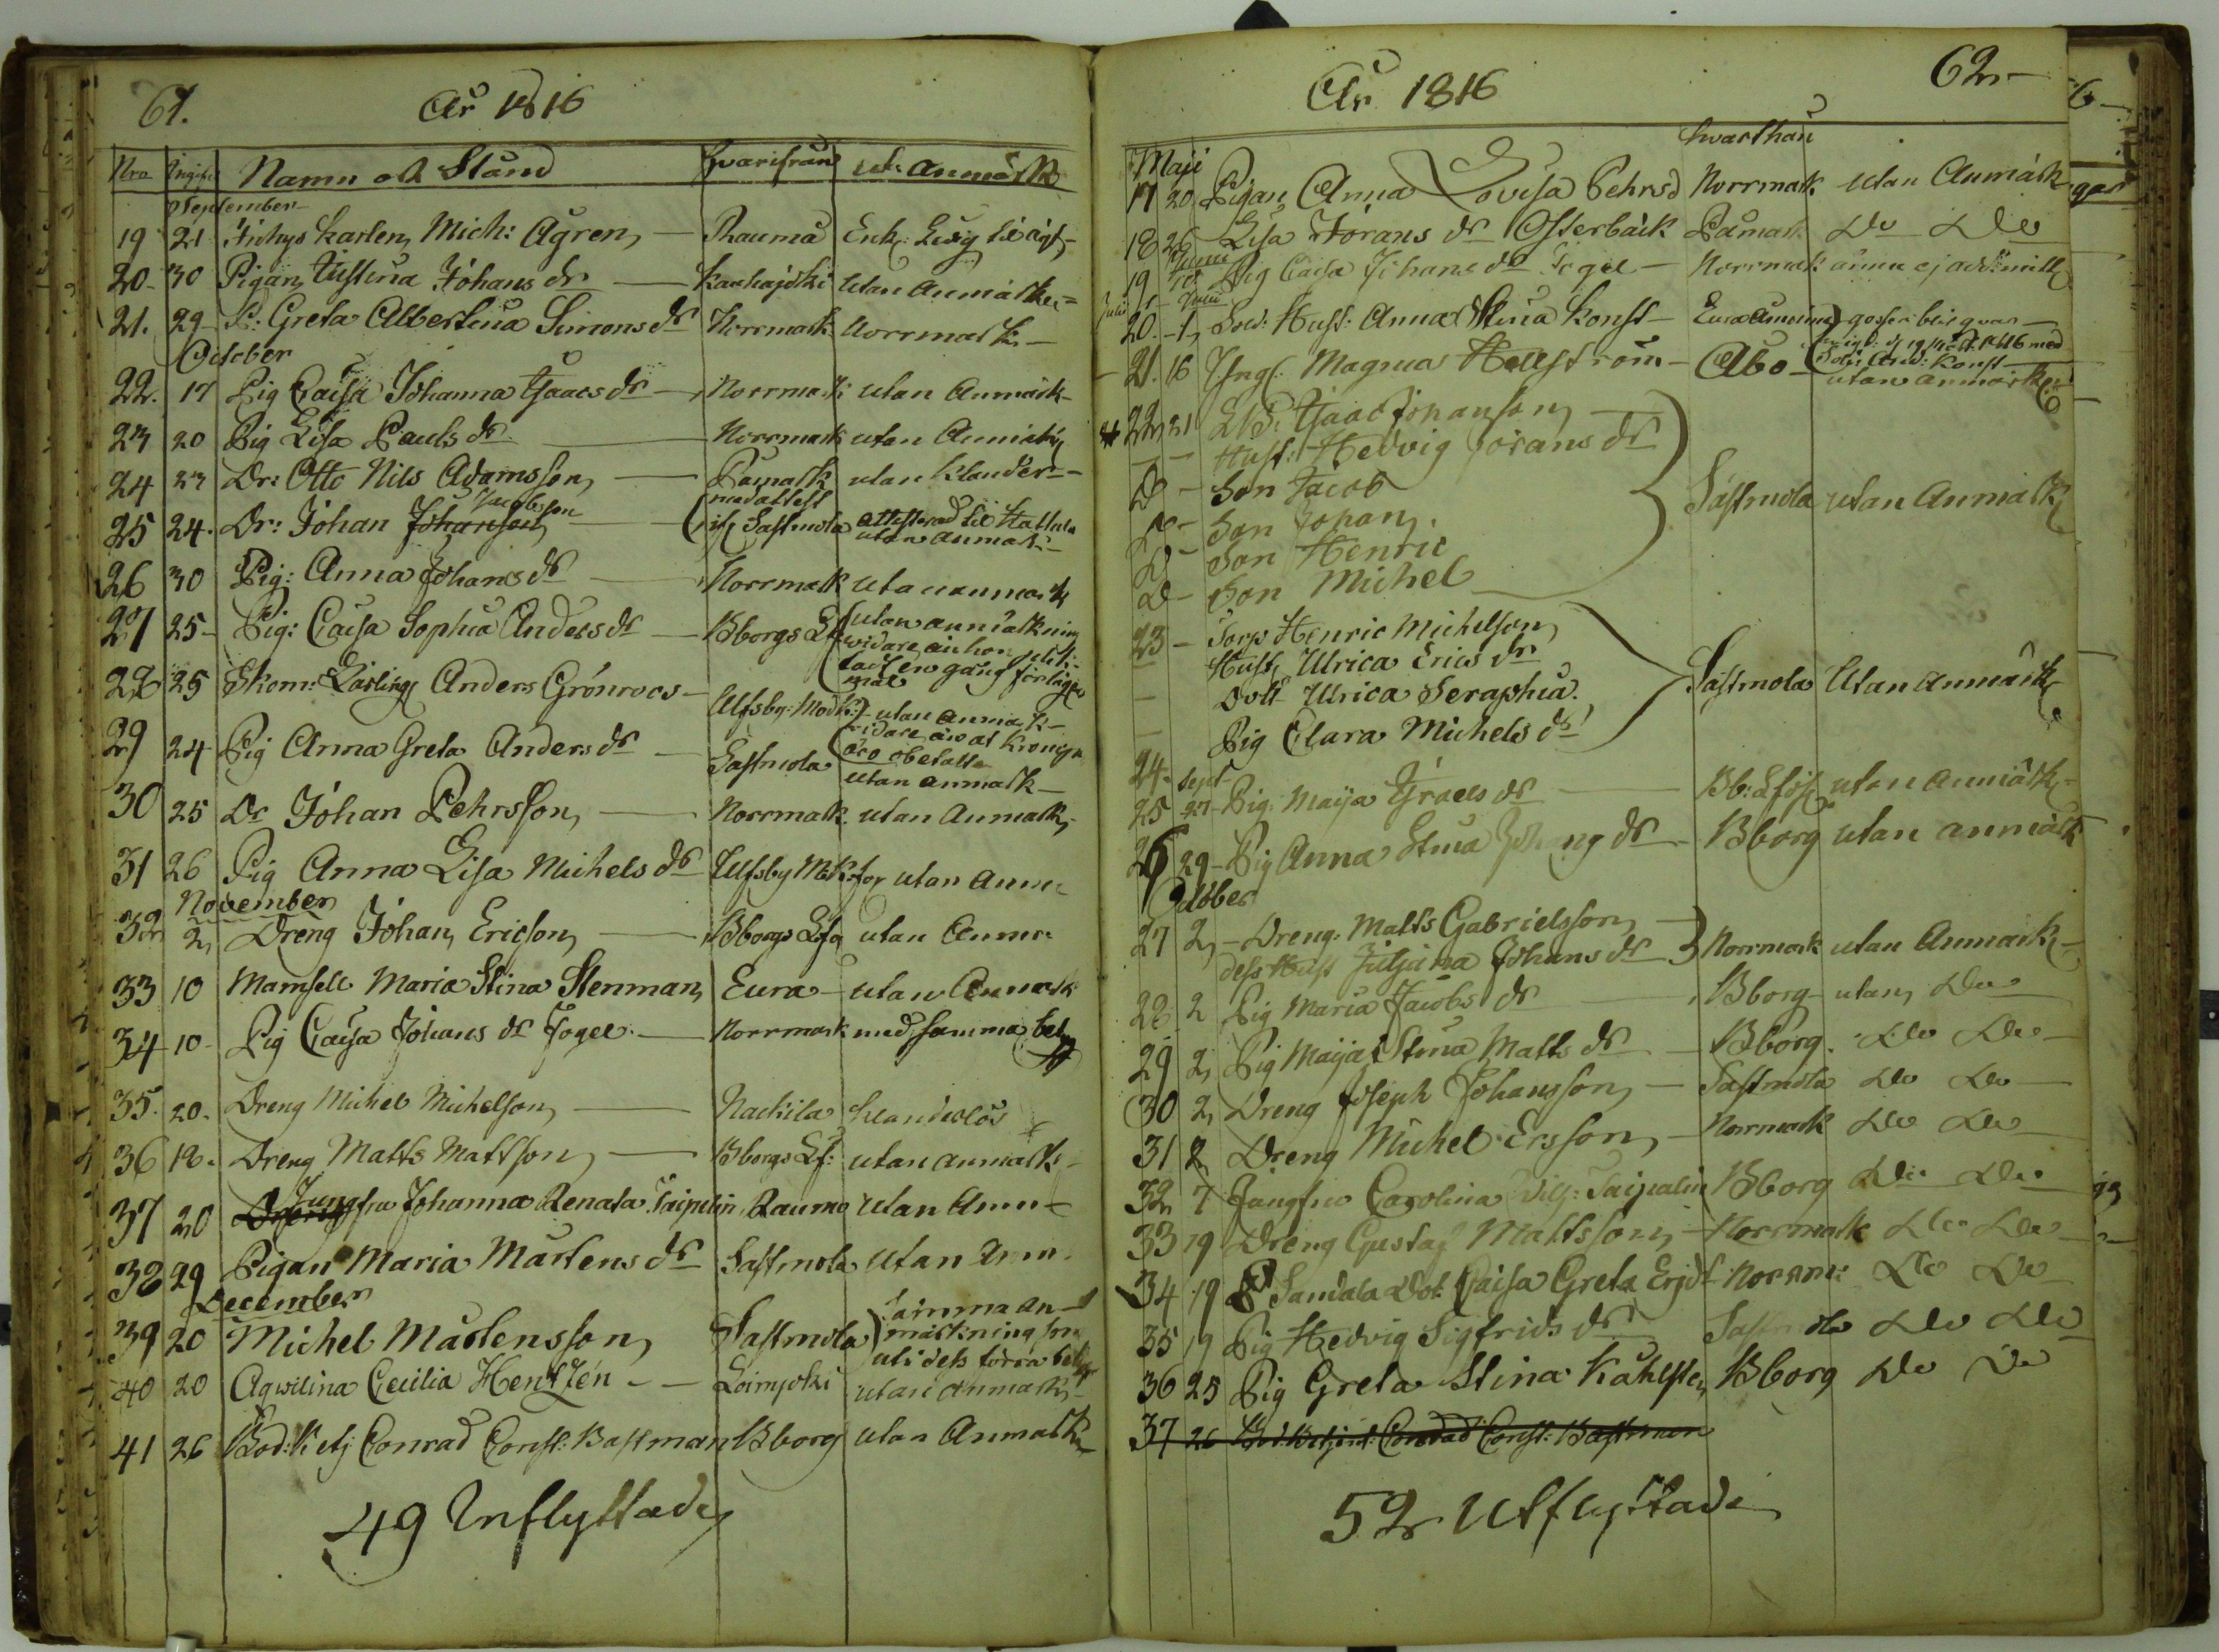 61.
År 1816
Nro Ingift Namn och Stånd Hvarifrån utan anmärk
September
19 21 karlen Mich: Ågren, — Rauma Enk: ledig til ägt.
20. 30 Pigan Justina Johans dr — Karhajoki utan Anmärkn
21. 29 P: Greta Albertina Simons dr Norrmark Norrmark
October
22. 17 Pig Caisa Johanna Isaacs dr — Norrmark utan Anmärk
23 20 Pig Lisa Pauls dr — Norrmark utan Anmärk
24 23 Dr: Otto Nils Adamsson, — Påmark utan klander
25 24. Dr: Johan Johanson Jacobsson — Sastmola attesterad til Hattula
med attest
utan anmärk
26 30 Pig: Anna Johans dr — Norrmark utan anmärk
27 25 Pig: Caisa Sophia Anders dr — Bborgs L (utan anmärkning
widare än hon
en gång förlägen
28 25 Skom: Lärling Anders Grönroos — Ulfsby: Modk: utan anmärk
widare än at
äro obetalte
29 24 Pig Anna Greta Anders dr — Sastmola utan anmärk
30 25 Dr Johan Pehrsson, — Norrmark utan Anmärk
31 26 Pig Anna Lisa Michels dr Ulfsby Mkfor utan Anm:
November
32 2 Dreng Johan Ericson, — Bborgs Lfg utan Anm:
33 10 Mamsell Maria Stina Stenman, Eura — utan Anmärk
34 10 Pig Caisa Johans dr Fogel — Norrmark med samma bet
35. 20. Dreng Michel Michelson, — Nackila klanderlös
36 18. Dreng Matts Mattson, — Bborgs Lf: utan anmärk
37 20 Jungfru Johanna Renata Taipalin Raumo utan Anm
38 29 Pigan Maria Mårtens dr Sastmola utan Anm.
December
39 20 Michel Mårtensson, Sastmola (samma an-
märkning som
uti dess förra betyg
40 20 Aqwilina Cecilia Hentzén — Loimjoki utan anmärk
41 26 Bod: Betj Conrad Const: Bastman Bborg utan Anmärk
49 Inflyttade
62.
År 1816
hwarthän
Maji
17 20 Pigan Anna Lovisa Pehrsd Norrmark utan Anmärk
18 26 Lisa Jörans dr Österback Påmark Do Do
Junii
19 10 Pig Caisa Johans dr Fogel — Norrmark ännu ej admitt
Julii
20. 1, Sold: Hust: Anna Stina Konst — Eura
21. 16 Yngl: Magnus Hellström — Åbo — utan anmärkn
22 21 Isaac Johanson,
Hust: Hedvig Jörans dr
D — Son Jacob
D — Son Johan, Sastmola utan Anmärk
D — Son Henric
D — Son Michel
23 — Torp Henric Michelson,
Hust Ulrica Erics dr
— Dott Ulrica Seraphia. Sastmola Utan anmärk
— Pig Clara Michels dr
24. Sept
25 27 Pig: Maija Graels dr — Bb: Lfös utan Anmärk
26 29 Pig Anna Stina dr — Bborg utan anmärk
October
27 2, Dreng: Matts Gabrielsson,
dess Hust Juliana Johans dr } Norrmark utan Anmärk
28 2 Pig Maria Jacobs dr — Bborg utan Do
29 2 Pig Maija Stina Matts dr — Bborg. Do Do
30 2 Dreng Joseph Johansson, — Sastmola Do Do
31 2 Dreng Michel Ersson, — Norrmark Do Do
32 7 Jungfru Carolina Vilh: Taipalin Bborg Do Do
33 19 Dreng Gustaf Mattsson, — Norrmark Do Do
34 19 Sandala Dot: Caisa Greta Ersd Norrm: Do Do
35 19 Pig Hedvig Sigfrids dr Sastmola Do Do
36 25 Pig Greta Stina Kåhlsten Bborg Do Do
37 26 Bod: Betjent: Conrad Const: Bastman
52 Utflyttade